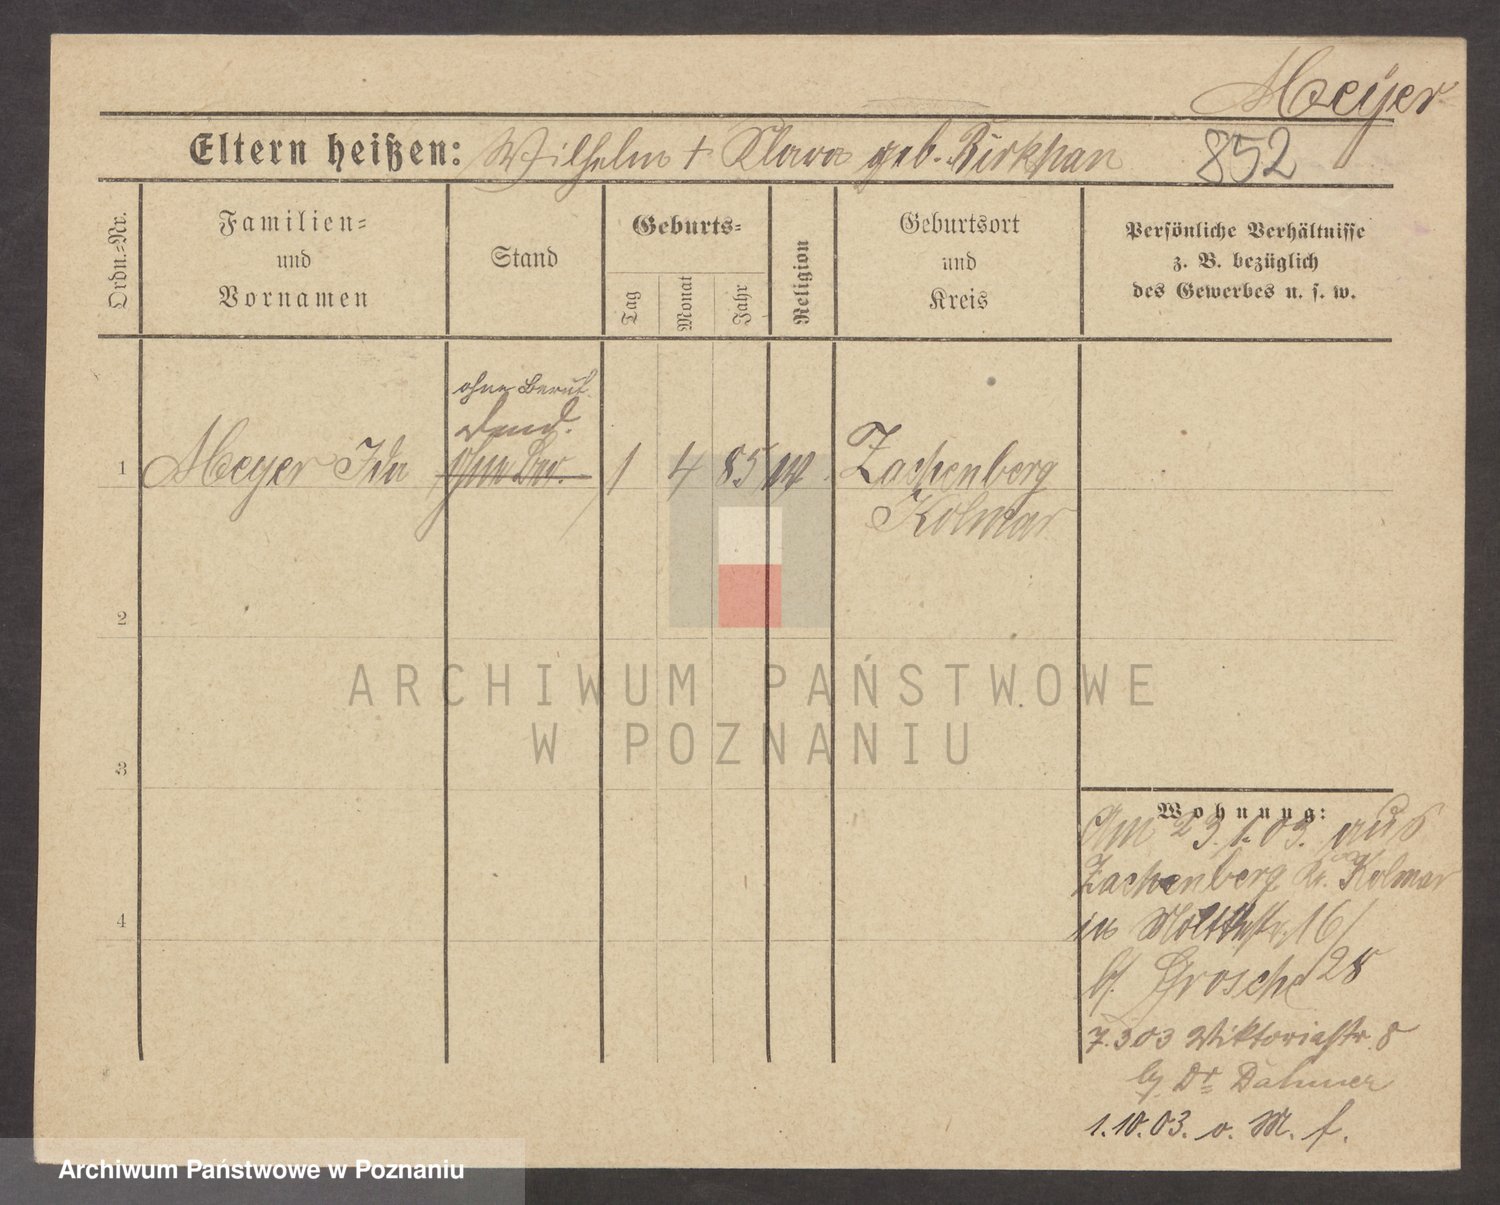 Meyer
Eltern heißen: Wilhelm + Klara geb. Birkhan 852
Ordn.=Nr.
Familien=
und
Vornamen
Stand
Geburts=
Tag
Monat
Jahr
Religion
Geburtsort
und
Kreis
Persönliche Verhältnisse
z. B. bezüglich
des Gewerbes u. s. w.
ohne Beruf
1 Meyer Ida 1 4 85 Zachenberg
Kolmar
2
3
4
Wohnung:
Am 23.1.03. aus
Zachenberg Kr. Kolmar
in Moltkestr. 16/
b/. Grosche 28
7.3 03 Viktoriastr. 8
b/ Dr Dahmer
1.10.03. o. M. f.
ARCHIWUM PAŃSTWOWE
W POZNANIU
Archiwum Państwowe w Poznaniu